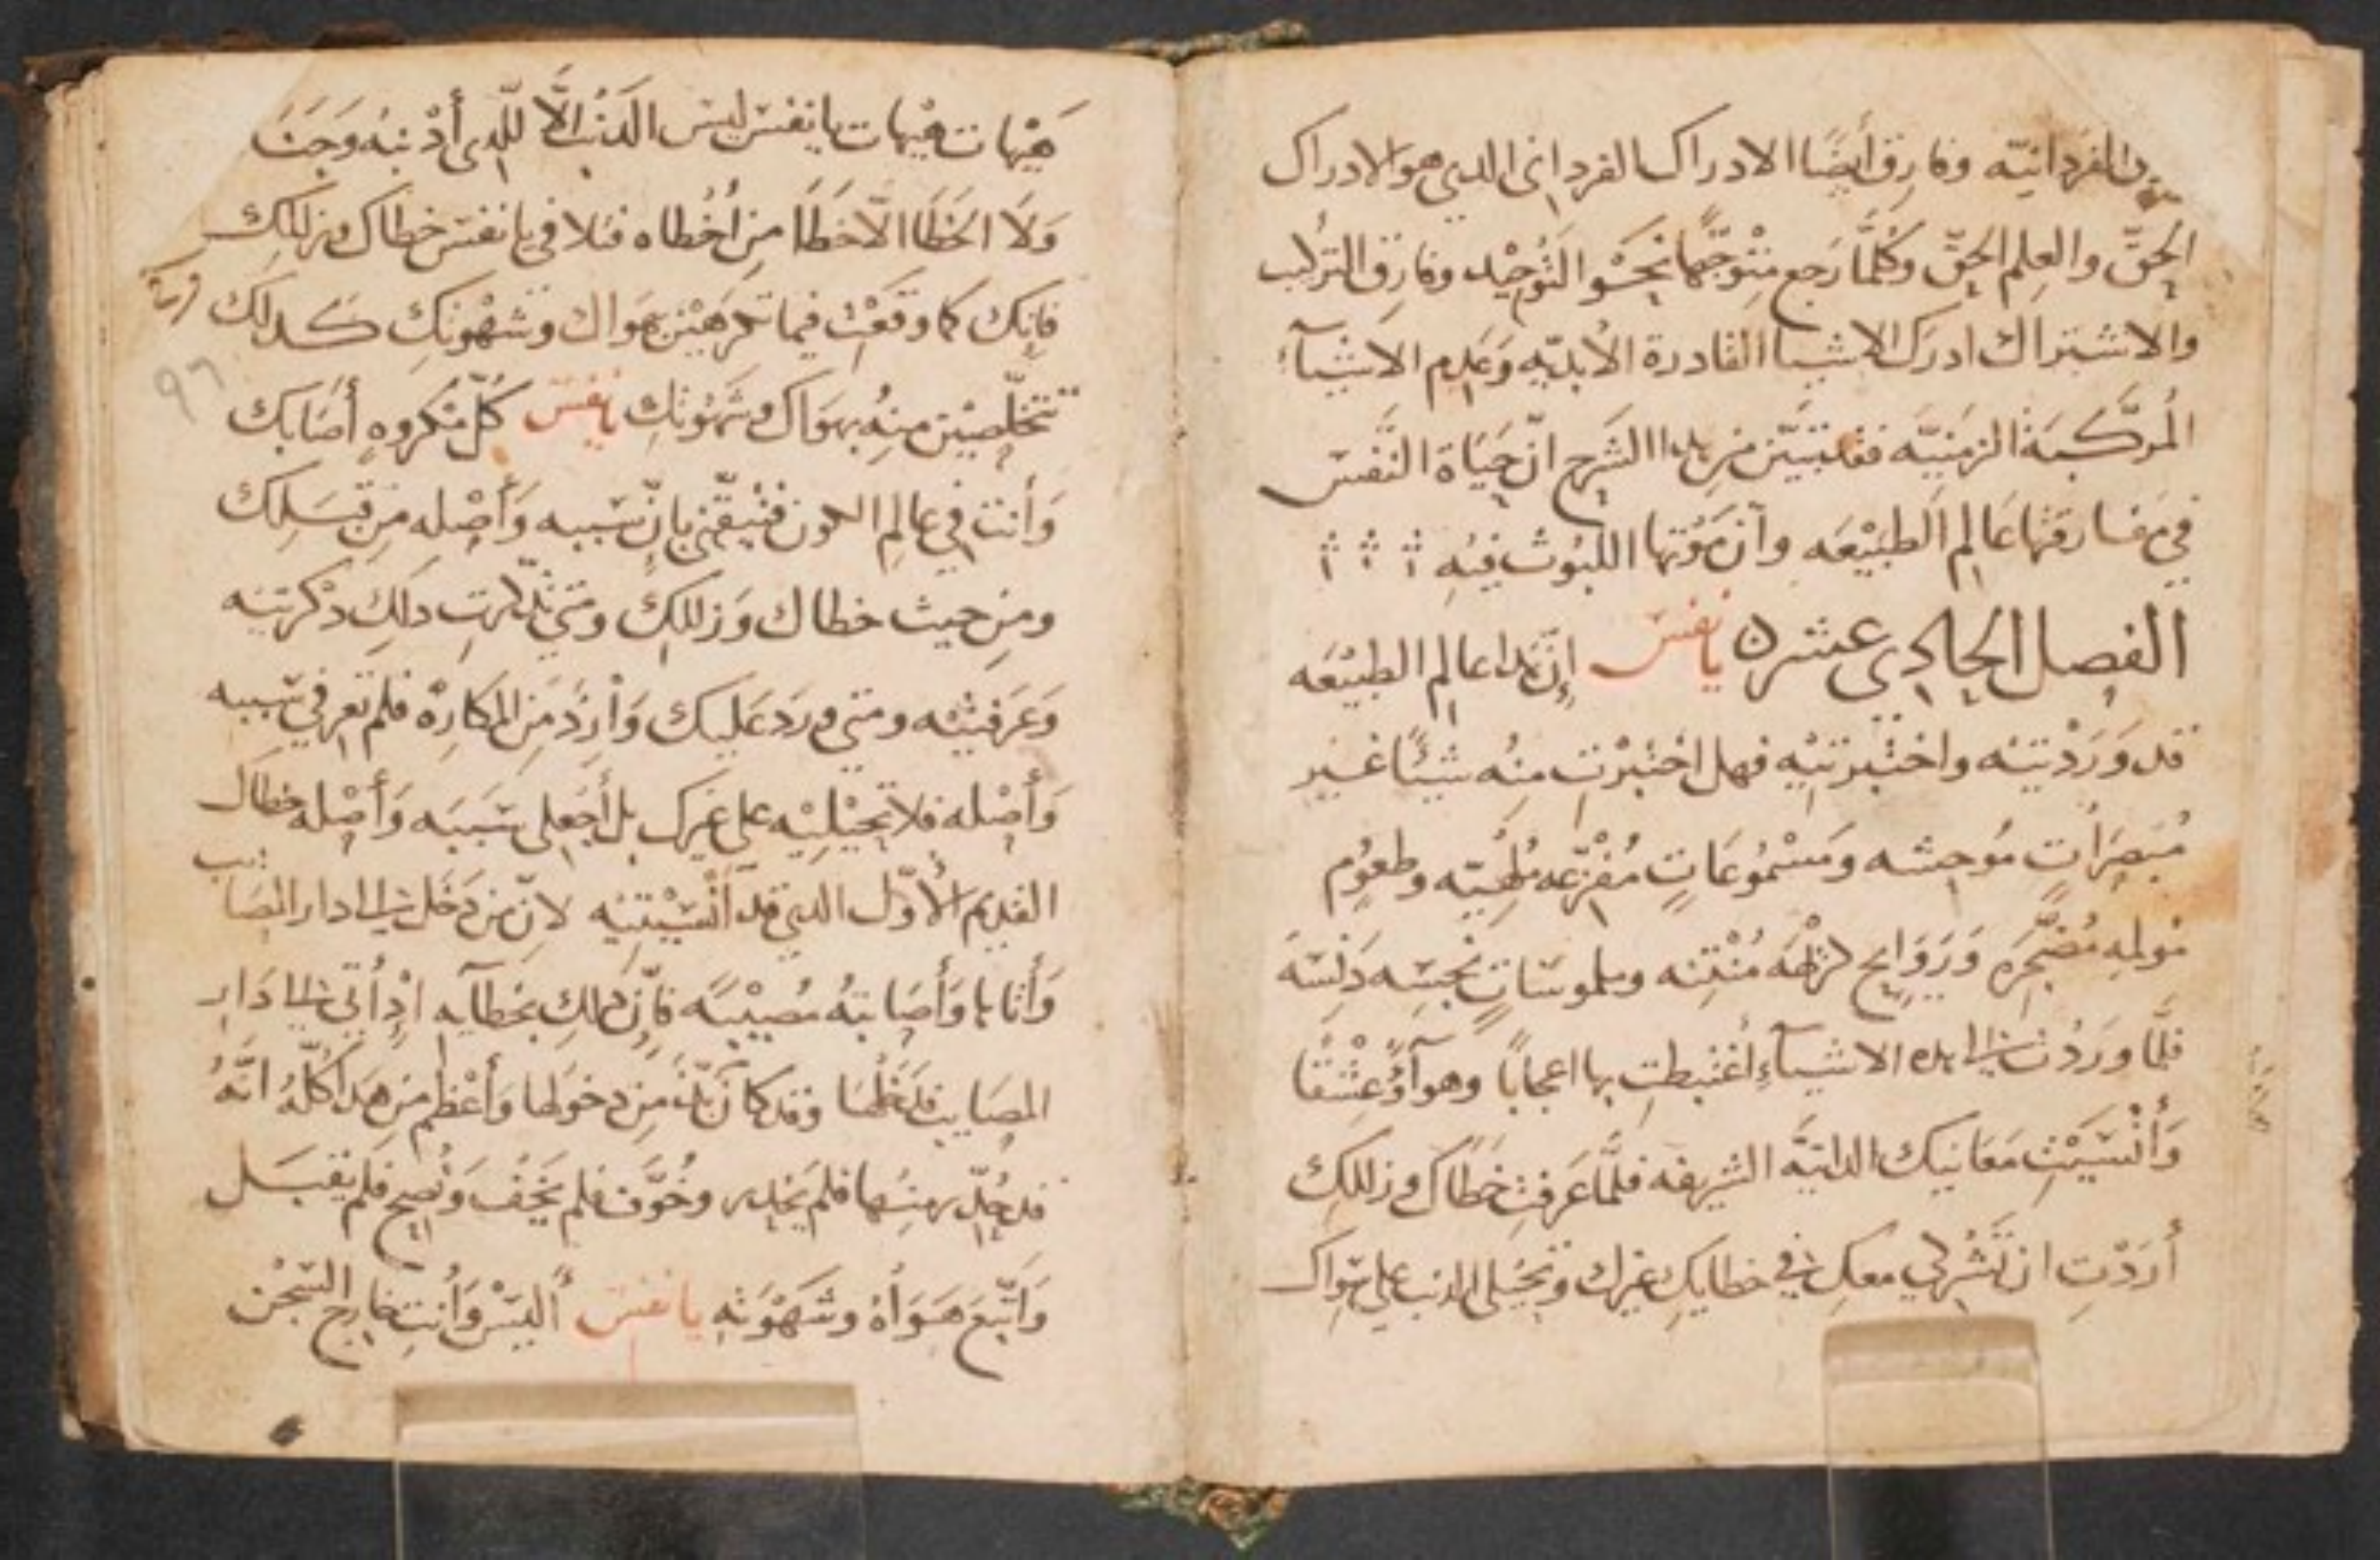 الفردانيّه وفارق أيضًا الادراك الفرداني الدي هو الادراك
الحقّ والعِلم الحقّ وكُلّما رَجع متْوجّهًا نَحْو التَوُحِيْد وفارق التركيب
والاشتراك ادرَك الاشيا القادرة الأبديّه وَعَدِم الاشيآء
المُركَّبَة الزمنيّه فقد تبيّن مِن هدا الشَرح انّ حَيَاة النّفس
في مفارقتها عَالم الطبيْعَه وانّ مَوُتها اللبُوث فيْهِ
الفصل الحادي عشره يا نفس إنّ هدا عالم الطبيْعَه
قد وَرَدْتيْه واختبرتيْه فهل اختبرْتِ منْه شيئًا غير
مُبصَرَاتٍ مُوحِشه ومَسْمُوعَاتٍ مُفْزِعه مُلْهيّه وطعوُمٍ
مُولمهِ مُضْجِرَه وَرَوَايح كرْهَه مُنْتِنه وملموسَاتٍ نجسَه دَنِسَه
فلمَّا ورَدْتِ الى هده الاشيآءِ اغْتبطتِ بها اعجابًا وهوآءً وْعشْقًا
وَأُنْسيْتِ مَعَانيكِ الداتيَّه الشريفه فلمَّا عَرفتِ خَطَاكِ وزللكِ
أرَدْتِ ان تَشْركي معكِ في خطايكِ غيرك وتحيْلي الدنب علي سِوَاك
هَيْهات هيْهات يا نفس ليسَ الدَنْب الَّا للّدي أدْنبُه وَجَنَا
وَلَا الخَطَا الّا خَطَا مِن أخْطاه فتلافي يا نفسَ خطاك وزللكِ
فانِك كما وقعْتِ فيما تكرهيْن بهَواك وشهْوتكِ كدلكَ
تتخلّصيْن منهُ بهوَاك وشهْوتكِ يا نفس كُلّ مَكروهٍ أصَابك
وَأنتِ في عالم الكون فتْيقّني بانّ سَببه وَأصْله مِن قبَلِك
ومِن حيث خطاك وَزللكِ ومَتي تدكرتِ دلك دكرتيْه
وَعَرَفتيْه ومتي ورَد عَليك وَارِدٌ مِن المكارِهْ فلم تعرفي سَببه
وَأصْله فلا تحيْليْه على غيرك بل أجعلي سَببَه وَأصْله خطاك
القديم الأوّل الدي قد أنْسيْتيْه لانّ من دَخَل الى دار المصَايب
وَأتاها وَأصَابتهُ مصيْبَه فانّ دلكَ بخطَايه ادْ أتي الى دَار
المصَايب فدَخَلْها وقد كانَ بُدّ مِن دخوُلها وَأعْظم مِن هدا كُلّهُ انَّهُ
قد حُدّر منْها فلم يَحْدر وخُوّف فلم يَخَفْ وَنُصِح فلم يقبَل
وَاتّبَع هَوَاهُ وشَهْوَته يا نفس أليْسَ وَأنتِ خارج السّجْن